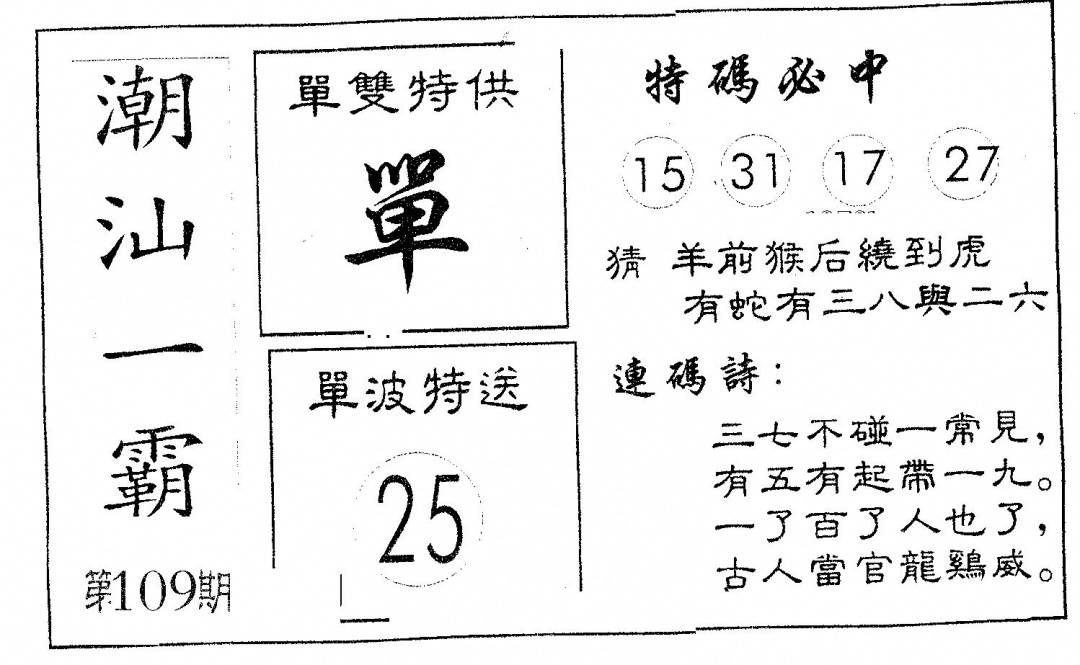 潮汕一霸
第109期
單雙特供
單
單波特送
25
特碼必中
15 31 17 27
猜 羊前猴后繞到虎
有蛇有三八與二六
連碼詩：
三七不碰一常見，
有五有起帶一九。
一了百了人也了，
古人當官龍鷄威。